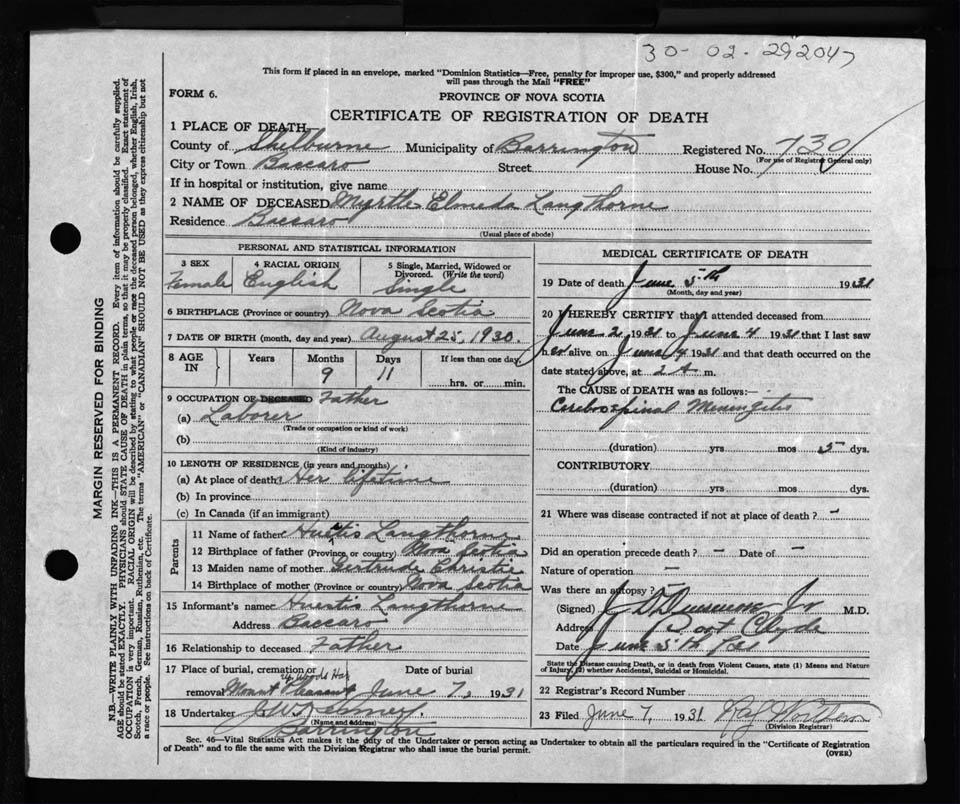 30-02-292047
This form if placed in an envelope, marked "Dominion Statistics—Free, penalty for improper use, $300," and properly addressed
will pass through the Mail "FREE"
FORM 6.
PROVINCE OF NOVA SCOTIA
CERTIFICATE OF REGISTRATION OF DEATH
1 PLACE OF DEATH
County of Shelburne Municipality of Barrington Registered No. 730
(For use of Registrar General only)
City or Town Baccaro Street House No.
If in hospital or institution, give name
2 NAME OF DECEASED Myrtle Elmeda Langthorne
Residence Baccaro
(Usual place of abode)
PERSONAL AND STATISTICAL INFORMATION
3 SEX
Female
4 RACIAL ORIGIN
English
5 Single, Married, Widowed or
Divorced. (Write the word)
Single
6 BIRTHPLACE (Province or country) Nova Scotia
7 DATE OF BIRTH (month, day and year) August 25, 1930.
8 AGE IN Years Months Days If less than one day,
9 11
hrs. or min.
9 OCCUPATION OF DECEASED Father
(a) Laborer
(Trade or occupation or kind of work)
(b)
(Kind of industry)
10 LENGTH OF RESIDENCE (in years and months)
(a) At place of death Her lifetime
(b) In province
(c) In Canada (if an immigrant)
Parents
11 Name of father Huestis Langthorne
12 Birthplace of father (Province or country) Nova Scotia
13 Maiden name of mother Gertrude Christie
14 Birthplace of mother (Province or country) Nova Scotia
15 Informant's name Huestis Langthorne
Address Baccaro
16 Relationship to deceased Father
17 Place of burial, cremation or Date of burial
Up Woods Har
removal Mount Pleasant June 7, 1931
18 Undertaker
(Name and address)
Barrington
MEDICAL CERTIFICATE OF DEATH
19 Date of death June 5th 1931
(Month, day and year)
20 I HEREBY CERTIFY that I attended deceased from
June 2, 1931 to June 4 1931 that I last saw
her alive on June 4 1931 and that death occurred on the
date stated above, at 2 A m.
The CAUSE OF DEATH was as follows:
Cerebrospinal Meningitis
(duration) yrs mos 5 dys.
CONTRIBUTORY
(duration) yrs mos dys.
21 Where was disease contracted if not at place of death? -
Did an operation precede death? - Date of -
Nature of operation -
Was there an autopsy? -
(Signed) Jr M.D.
Address Port Clyde
Date June 5th
State the Disease causing Death, or in death from Violent Causes, state (1) Means and Nature
of Injury, (2) whether Accidental, Suicidal or Homicidal.
22 Registrar's Record Number
23 Filed June 7, 1931
(Division Registrar)
Sec. 46—Vital Statistics Act makes it the duty of the Undertaker or person acting as Undertaker to obtain all the particulars required in the "Certificate of Registration
of Death" and to file the same with the Division Registrar who shall issue the burial permit.
(OVER)
MARGIN RESERVED FOR BINDING
N.B.—WRITE PLAINLY WITH UNFADING INK—THIS IS A PERMANENT RECORD. Every item of information should be carefully supplied.
AGE should be stated EXACTLY. PHYSICIANS should STATE CAUSE OF DEATH in plain terms, so that it may be properly classified. Exact statement of
OCCUPATION is very important. RACIAL ORIGIN will be described by stating to what people or race the deceased person belonged, whether English, Irish,
Scotch, French, German, Russian, Ruthenian, etc. The terms "AMERICAN" or "CANADIAN" SHOULD NOT BE USED as they express citizenship but not
a race or people. See instructions on back of Certificate.